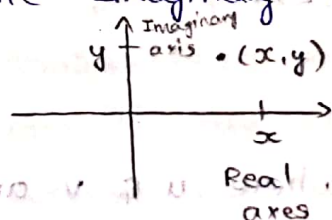 Imaginary
axis
y
(x, y)
x
Real
axes